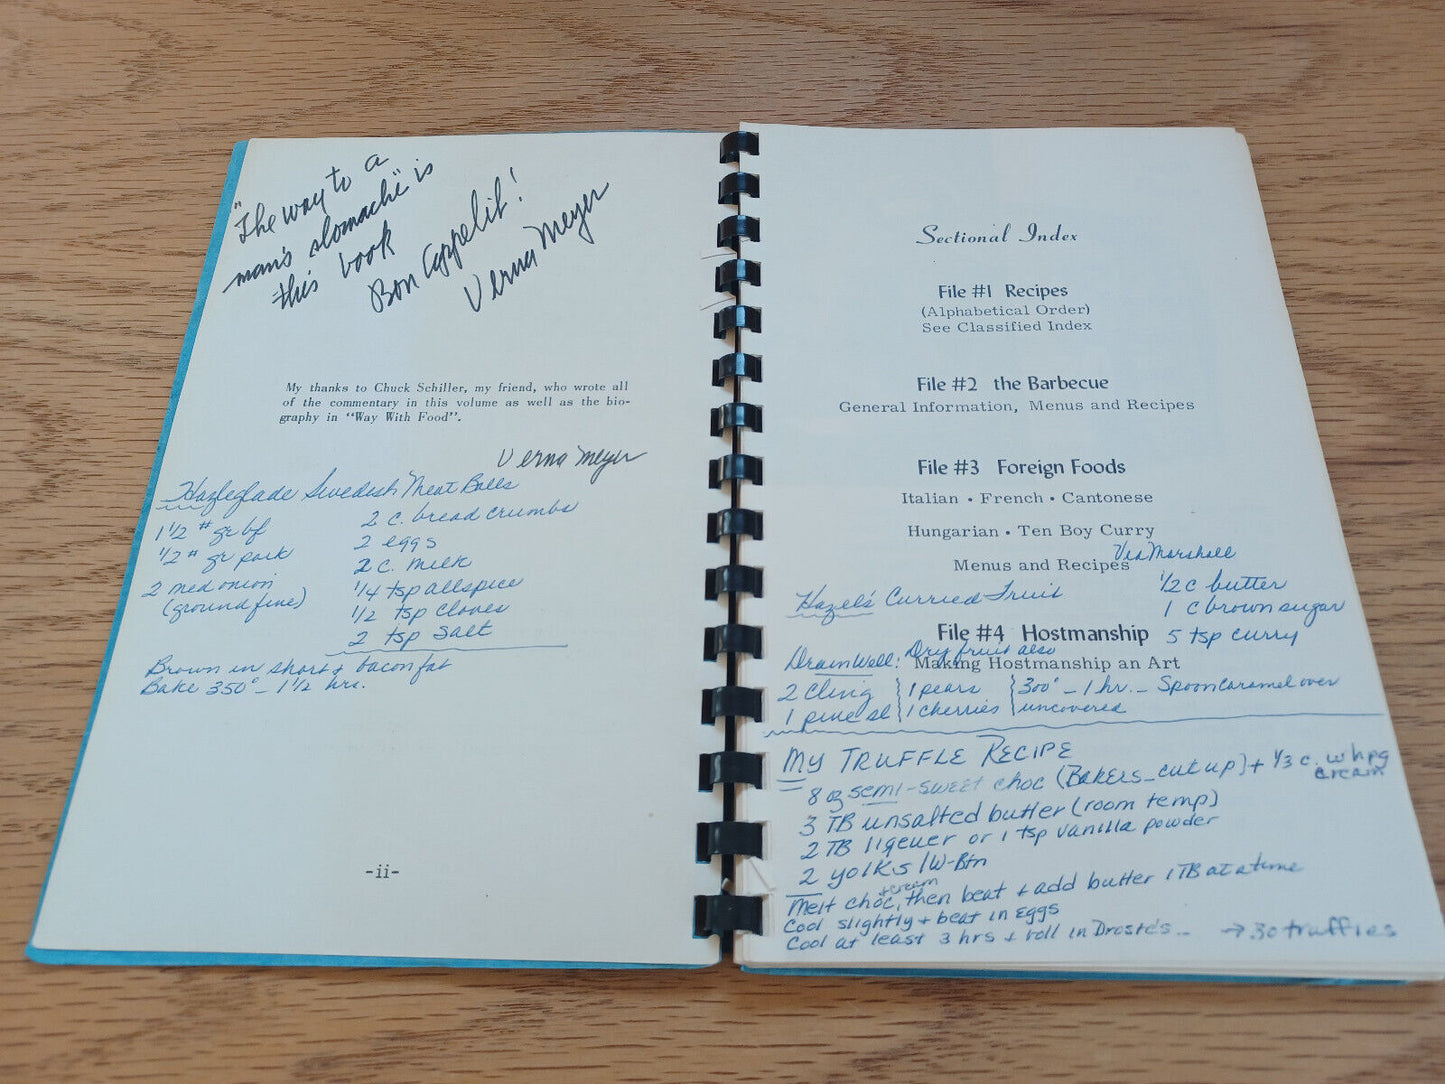 "The way to a
man's stomache" is
this book
Bon Appetit!
Verna Meyer
My thanks to Chuck Schiller, my friend, who wrote all
of the commentary in this volume as well as the bio-
graphy in "Way With Food".
Verna Meyer
Swedish Meat Balls
1 1/2 # gr bf
1/2 # gr pork
2 med onion
(ground fine)
2 c. bread crumbs
2 eggs
2 c. milk
1/4 tsp allspice
1/2 tsp cloves
2 tsp salt
Brown in short + bacon fat
Bake 350° - 1 1/2 hrs.
-ii-
Sectional Index
File #1 Recipes
(Alphabetical Order)
See Classified Index
File #2 the Barbecue
General Information, Menus and Recipes
File #3 Foreign Foods
Italian • French • Cantonese
Hungarian • Ten Boy Curry
Menus and Recipes
Via Marshall
Hazel's Curried Fruit
1/2 c butter
1 c brown sugar
5 tsp curry
File #4 Hostmanship
Making Hostmanship an Art
Drain Well: Dry fruit also
2 cling } 1 pears } 300° - 1 hr. - Spoon caramel over
1 pine sl } 1 cherries } uncovered
MY TRUFFLE RECIPE
8 oz semi-sweet choc (Bakers - cut up) + 1/3 c. whpg cream
3 TB unsalted butter (room temp)
2 TB liqeuer or 1 tsp vanilla powder
2 yolks /W-Btn
Melt choc, + cream then beat + add butter 1 TB at a time
Cool slightly + beat in Eggs
Cool at least 3 hrs + roll in Droste's - → 30 truffles